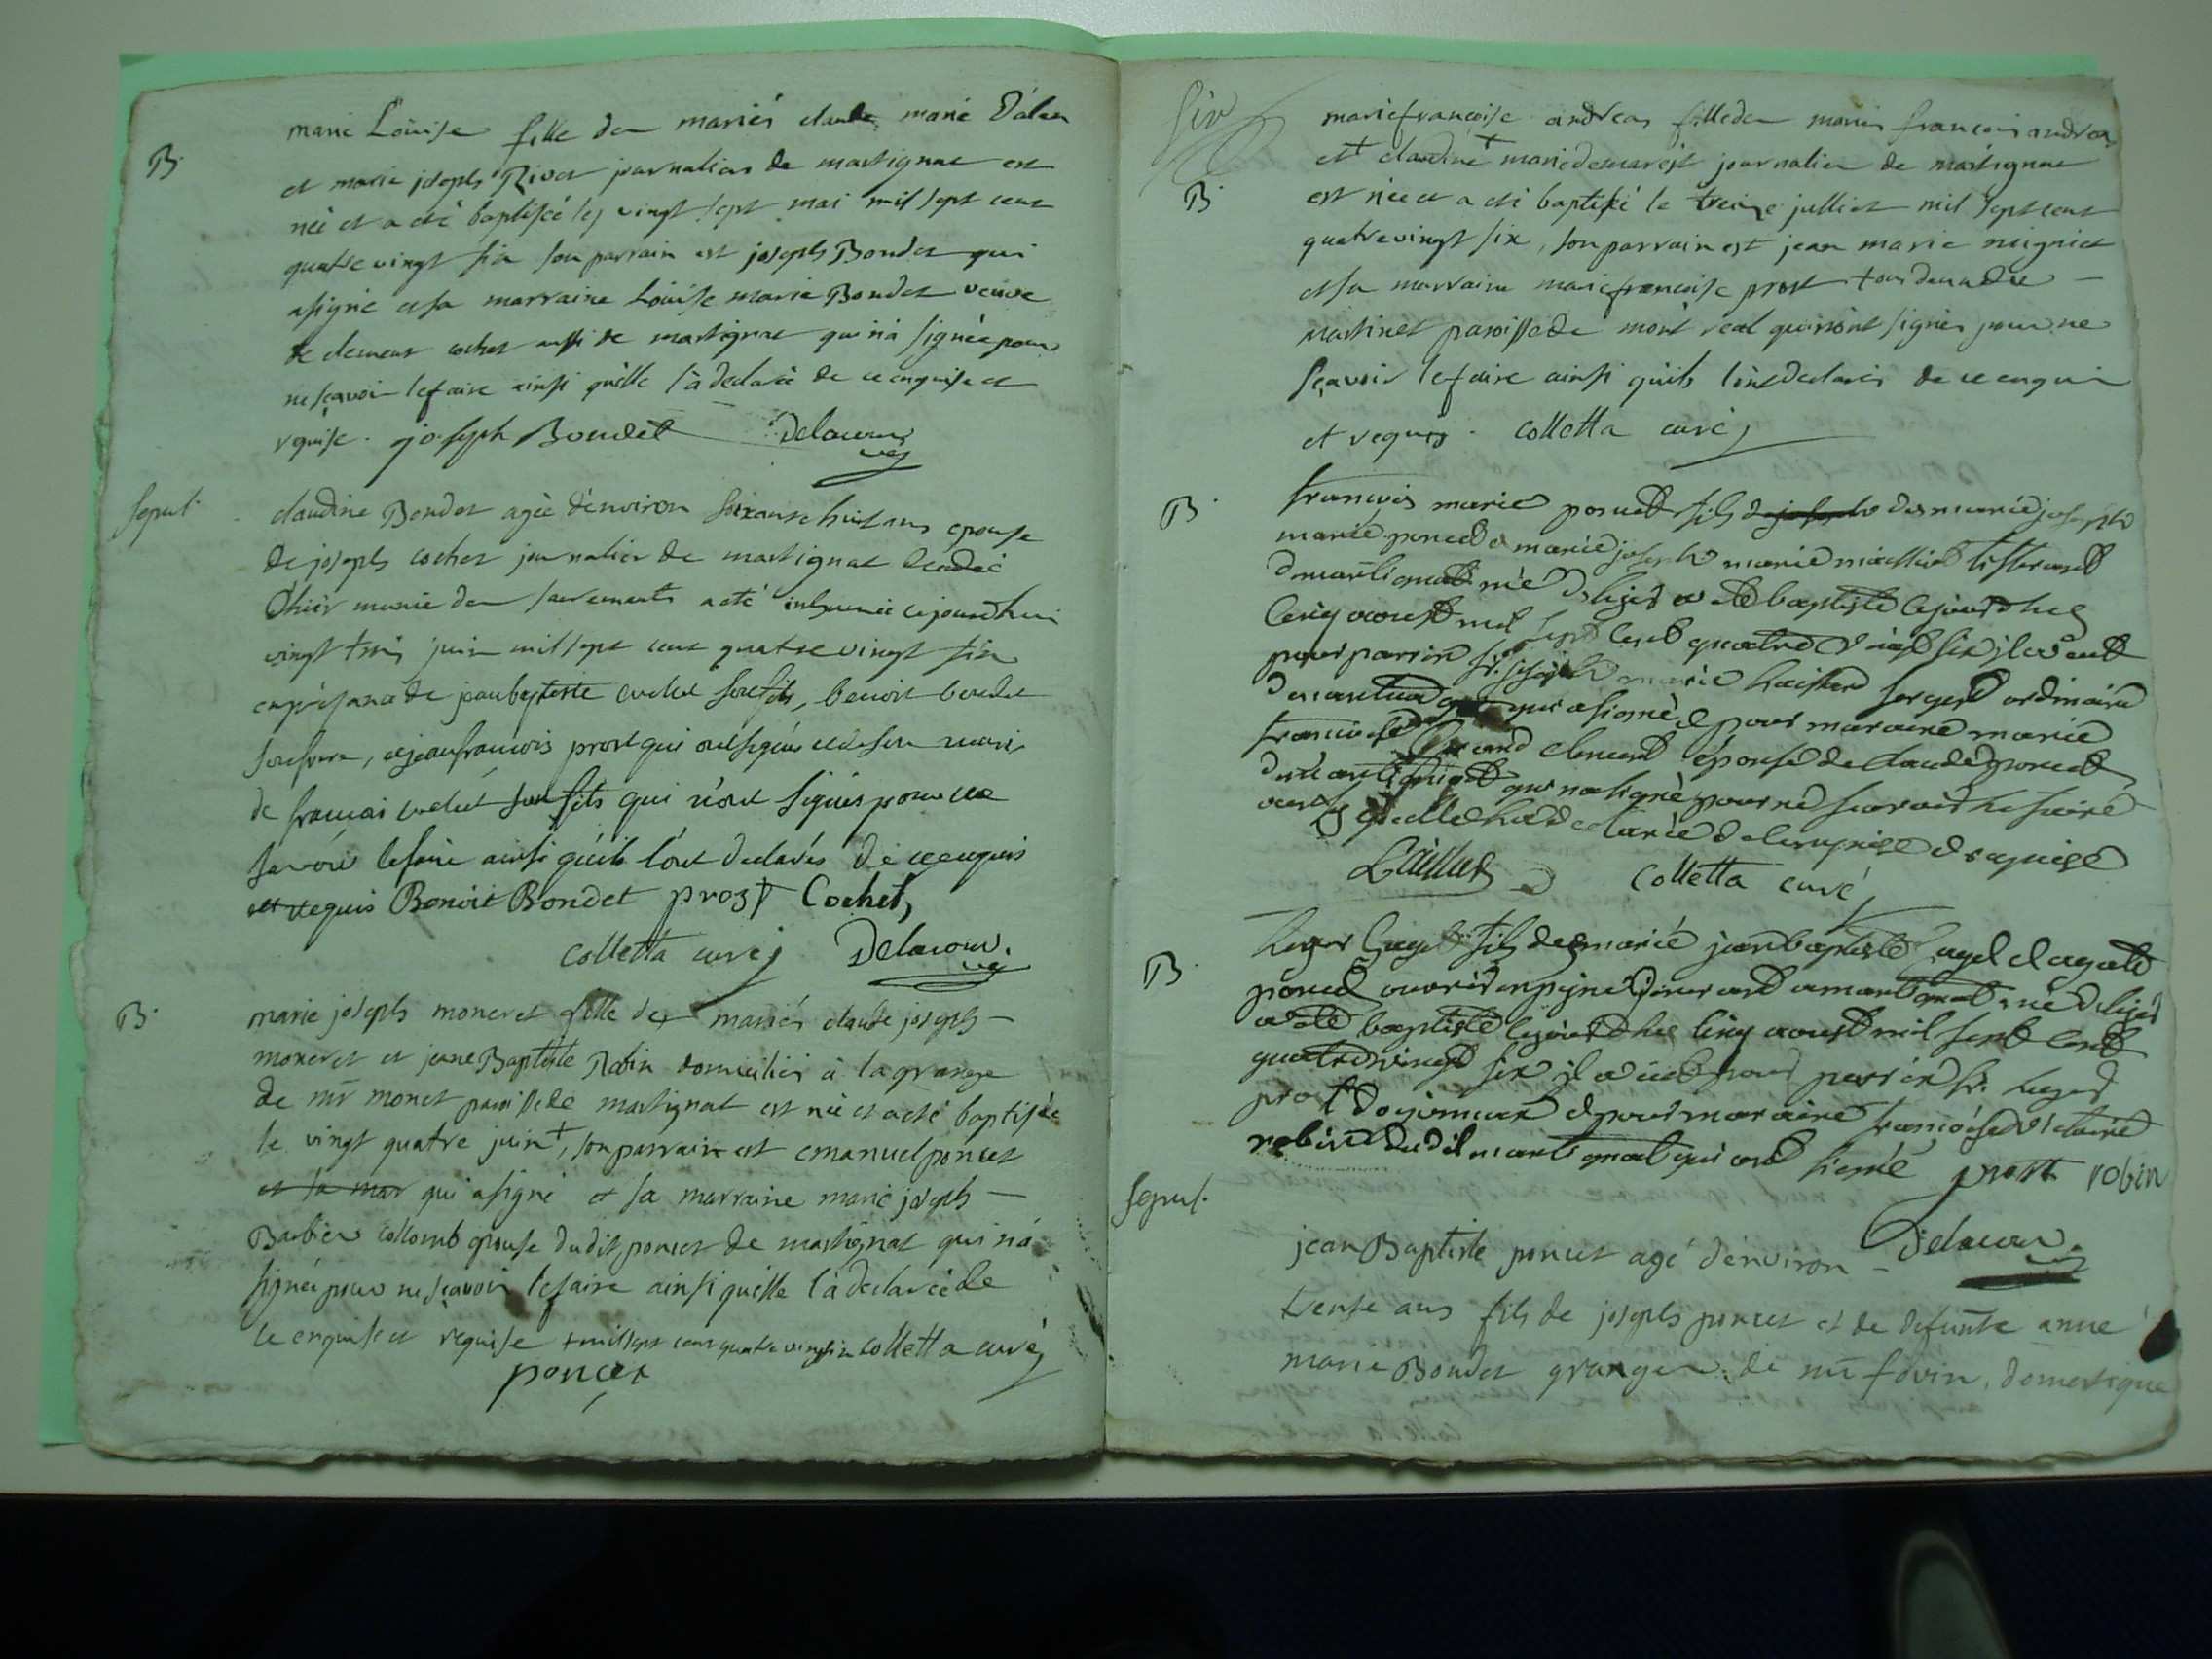 B.
marie Loüise fille des mariés claude marie Dálex
et marie joseph Rivet journaliers de martignat est
née et a été baptisée les vingt sept mai mil sept cent
quatre vingt six son parrain est joseph Bondet qui
a signé et sa marraine Loüise marie Bondet veuve
de clement cochet aussi de martignat qui n'a signée pour
ne sçavoir le faire ainsi qu'elle l'a declarée de ce enquise et
requise. joseph Bondet Delacour
vic
sepul.
claudine Bondet agée d'environ soixante huit ans epouse
de joseph cochet journalier de martignat decedée
d'hier munie des sacrements a eté inhumée ce jourdhui
vingt trois juin mil sept cent quatre vingt six
en présence de jean baptiste cochet son fils, benoit bondet
son frere, et jean francois prost qui ont signés
de francois cochet son fils qui n'ont signés pour ne
savoir le faire ainsi qu'ils l'ont declarés de ce enquis
et requis Benoit Bondet prost Cochet
Colletta curé Delacour.
vic
B.
marie joseph moneret fille des mariés claude joseph
moneret et jeane Baptiste Robin domiciliés à la grange
de mr monet paroisse de martignat est née et a eté baptisée
le vingt quatre juin +, son parrain est emanuel poncet
et sa mar qui a signé et sa marraine marie joseph
Barbier collomb epouse du dit poncet de martignat qui n'a
signée pour ne sçavoir le faire ainsi qu'elle l'a declarée de
ce enquise et requise + mil sept cent quatre vingt six colletta curé
poncet
six
B.
marie françoise andréas fille des mariés francois andréas
et + claudine + marie demarest journalier de martignat
est née et a été baptisée le treize julliet mil sept cent
quatre vingt six, son parrain est jean marie
et sa marraine marie francoise prost tous deux de
martinet paroisse de mont real qui n'ont signés pour ne
sçavoir le faire ainsi qu'ils l'ont declarés de ce enquis
et requis. colletta curé
B.
francois marie poncet fils de joseph des marié joseph
marie poncet et marie joseph marie tisserant
de martignat né d'hiers a eté baptisté ce jourd'hui
cinq aoust mil sept cent quatre vingt six il a eut
pour parrin sr. joseph marie sergent ordinaire
de martignat qui a signé et pour maraine marie
francoise clement épouse de claude poncet
de martignat qui n'a signé pour ne scavoir le faire
ainsi qu'elle l'a declarée de ce enquise et requise
Colletta curé
B.
leger gagel fils des marié jean baptiste gagel et agate
poncet ouvrier en pigne demeurant a martignat né d'hier
a eté baptisté ce jourd'hui cinq aoust mil sept cent
quatre vingt six il a eut pour parrin sr. leger
prost d'oyonnax et pour maraine francoise victoire
robin dudit martignat qui ont signé prost robin
Delacour.
vic
sepul.
jean Baptiste poncet agé d'environ
trente ans fils de joseph poncet et de defunte anne
marie Bondet granger de mr fovin, domestique